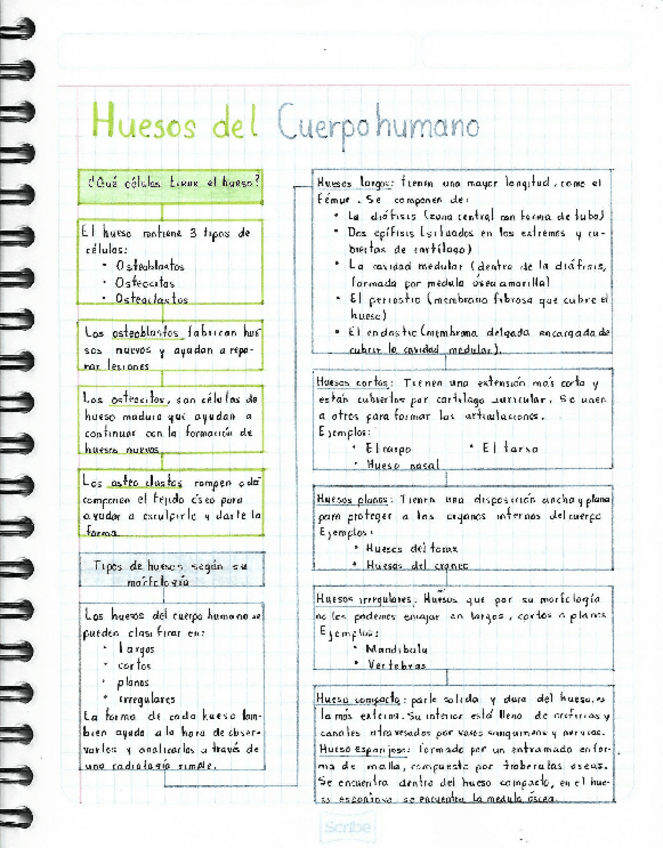 Huesos del Cuerpo humano
¿Qué células tiene el hueso?
El hueso contiene 3 tipos de
células:
• Osteoblastos
• Osteocitos
• Osteoclastos
Los osteoblastos, fabrican hue
sos nuevos y ayudan a repa-
rar lesiones
Los osteocitos, son células de
hueso maduro que ayudan a
continuar con la formación de
huesos nuevos.
Los osteo clastos rompen o des
componen el tejido óseo para
ayudar a esculpirle y darle la
forma.
Tipos de huesos según su
morfología
Los huesos del cuerpo humano se
pueden clasificar en:
• largos
• cortos
• planos
• irregulares
La forma de cada hueso tam-
bien ayuda a la hora de obser-
varlos y analizarlos a través de
una radiología simple.
Huesos largos: tienen una mayor longitud, como el
Fémur. Se componen de:
• La diáfisis (zona central con forma de tubo)
• Dos epífisis (situados en los extremos y cu-
biertas de cartílago)
• La cavidad medular (dentro de la diáfisis,
formada por medula ósea amarilla)
• El periostio (membrana fibrosa que cubre el
hueso)
• El endostio (membrana delgada encargada de
cubrir la cavidad medular).
Huesos cortos: Tienen una extensión más corta y
están cubiertos por cartílago auricular. Se unen
a otros para formar las articulaciones.
Ejemplos:
• El carpo • El tarso
• Hueso nasal
Huesos planos: Tienen una disposición ancha y plana
para proteger a los organos internos del cuerpo
Ejemplos:
• Huesos del torax
• Huesos del craneo
Huesos irregulares: Huesos que por su morfología
no les podemos encajar en largos, cortos o planos
Ejemplos:
• Mandibula
• Vertebras
Hueso compacto: parte solida y dura del hueso, es
la más externa. Su interior está lleno de orificios y
canales atravesados por vasos sanguineos y nervios.
Hueso esponjoso: formado por un entramado en for-
ma de malla, compuesta por trabeculas oseas.
Se encuentra dentro del hueso compacto, en el hue-
so esponjoso se encuentra la medula ósea.
Scribe